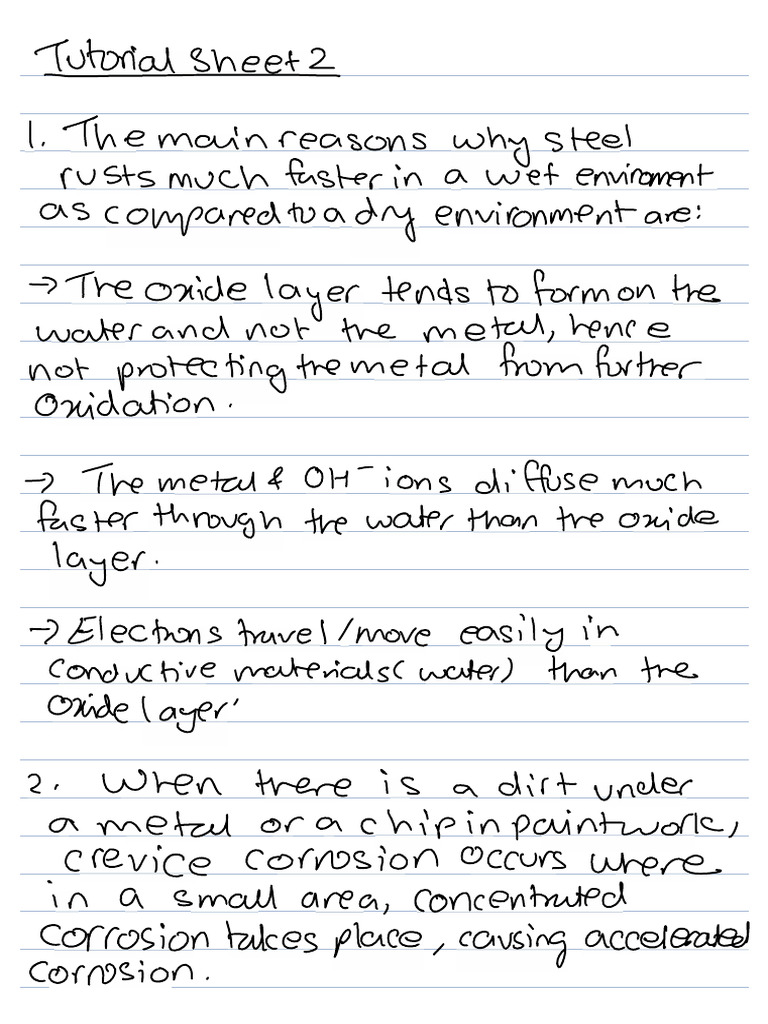 Tutorial Sheet 2
1. The main reasons why steel
rusts much faster in a wet enviroment
as compared to a dry environment are:
→ The oxide layer tends to form on the
water and not the metal, hence
not protecting the metal from further
oxidation.
→ The metal & OH⁻ ions diffuse much
faster through the water than the oxide
layer.
→ Electrons travel/move easily in
conductive materials (water) than the
oxide layer'
2. When there is a dirt under
a metal or a chip in paintwork,
crevice corrosion occurs where
in a small area, concentrated
corrosion takes place, causing accelerated
corrosion.